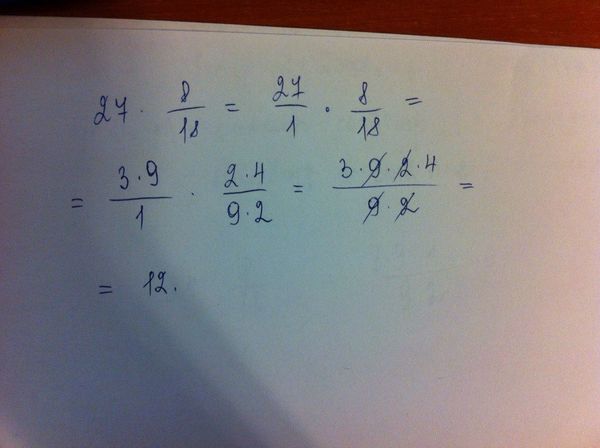 27 · 8/18 = 27/1 · 8/18 =
= 3·9/1 · 2·4/9·2 = 3·9·2·4/9·2 =
= 12.